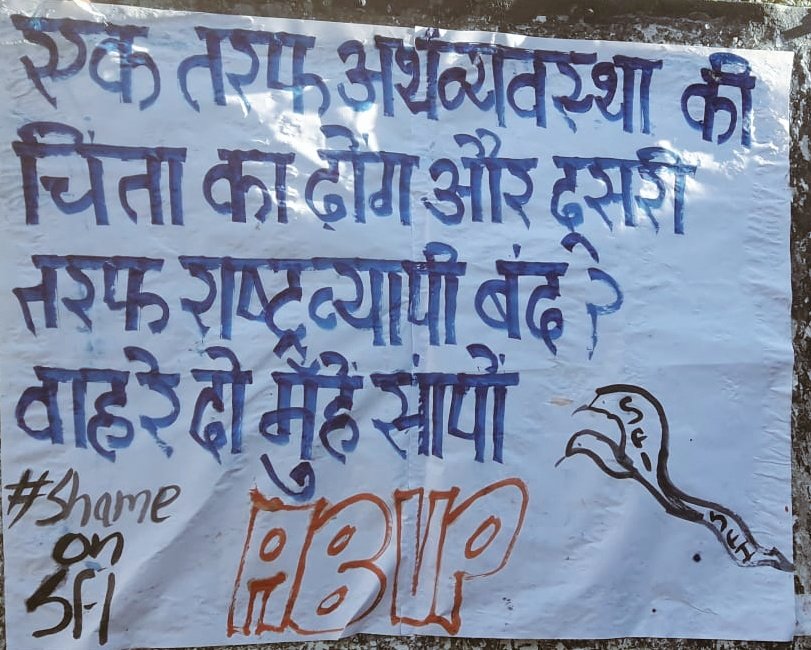 एक तरफ अर्थव्यवस्था की
चिंता का ढोंग और दूसरी
तरफ राष्ट्रव्यापी बंद?
वाहरे दो मुँहें सांपों
#Shame
on
SFI
ABVP
SFI
SFI